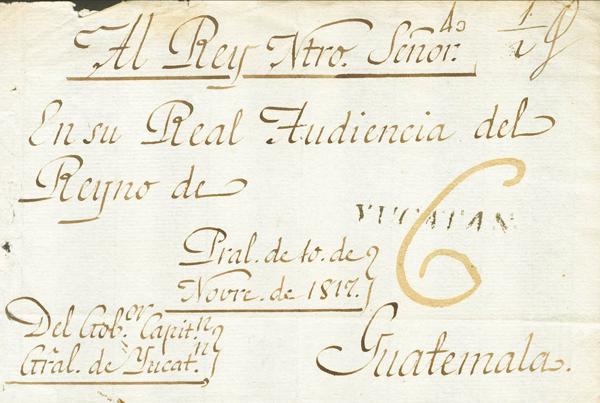 Al Rey Ntro. Señor.
En su Real Audiencia del
Reyno de
YUCATAN
6
Pral. de 10. de
Novre. de 1817.
Del Gob.or Capit.n
Gral. de Yucat.n
Guatemala.